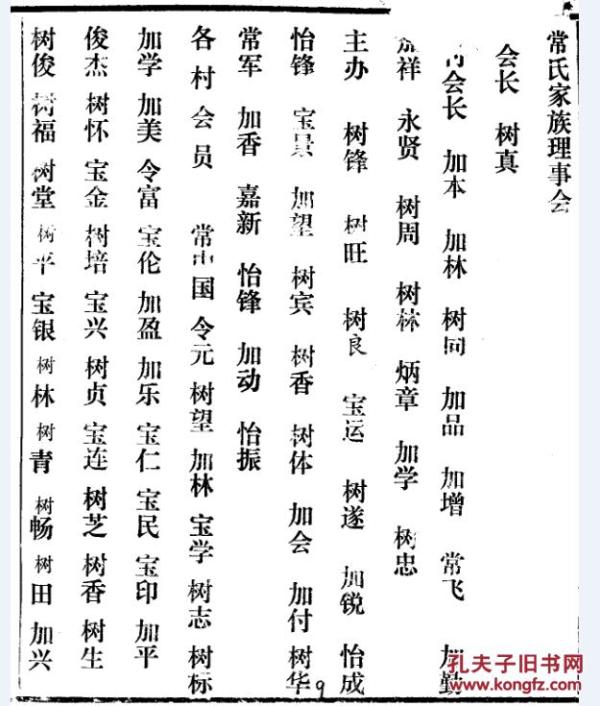 常氏家族理事会
会长 树真
会长 加本 加林 树同 加品 加增 常飞 加勤
祥 永贤 树周 树林 炳章 加学 树忠
主办 树锋 树旺 树良 宝运 树遂 加锐 怡成
怡锋 宝景 加望 树宾 树香 树体 加会 加付 树华
常军 加香 嘉新 怡锋 加动 怡振
各村会员 常中国 令元 树望 加林 宝学 树志 树标
加学 加美 令富 宝伦 加盈 加乐 宝仁 宝民 宝印 加平
俊杰 树怀 宝金 树培 宝兴 树贞 宝连 树芝 树香 树生
树俊 树福 树堂 树平 宝银 树林 树青 树畅 树田 加兴
9
孔夫子旧书网
www.kongfz.com